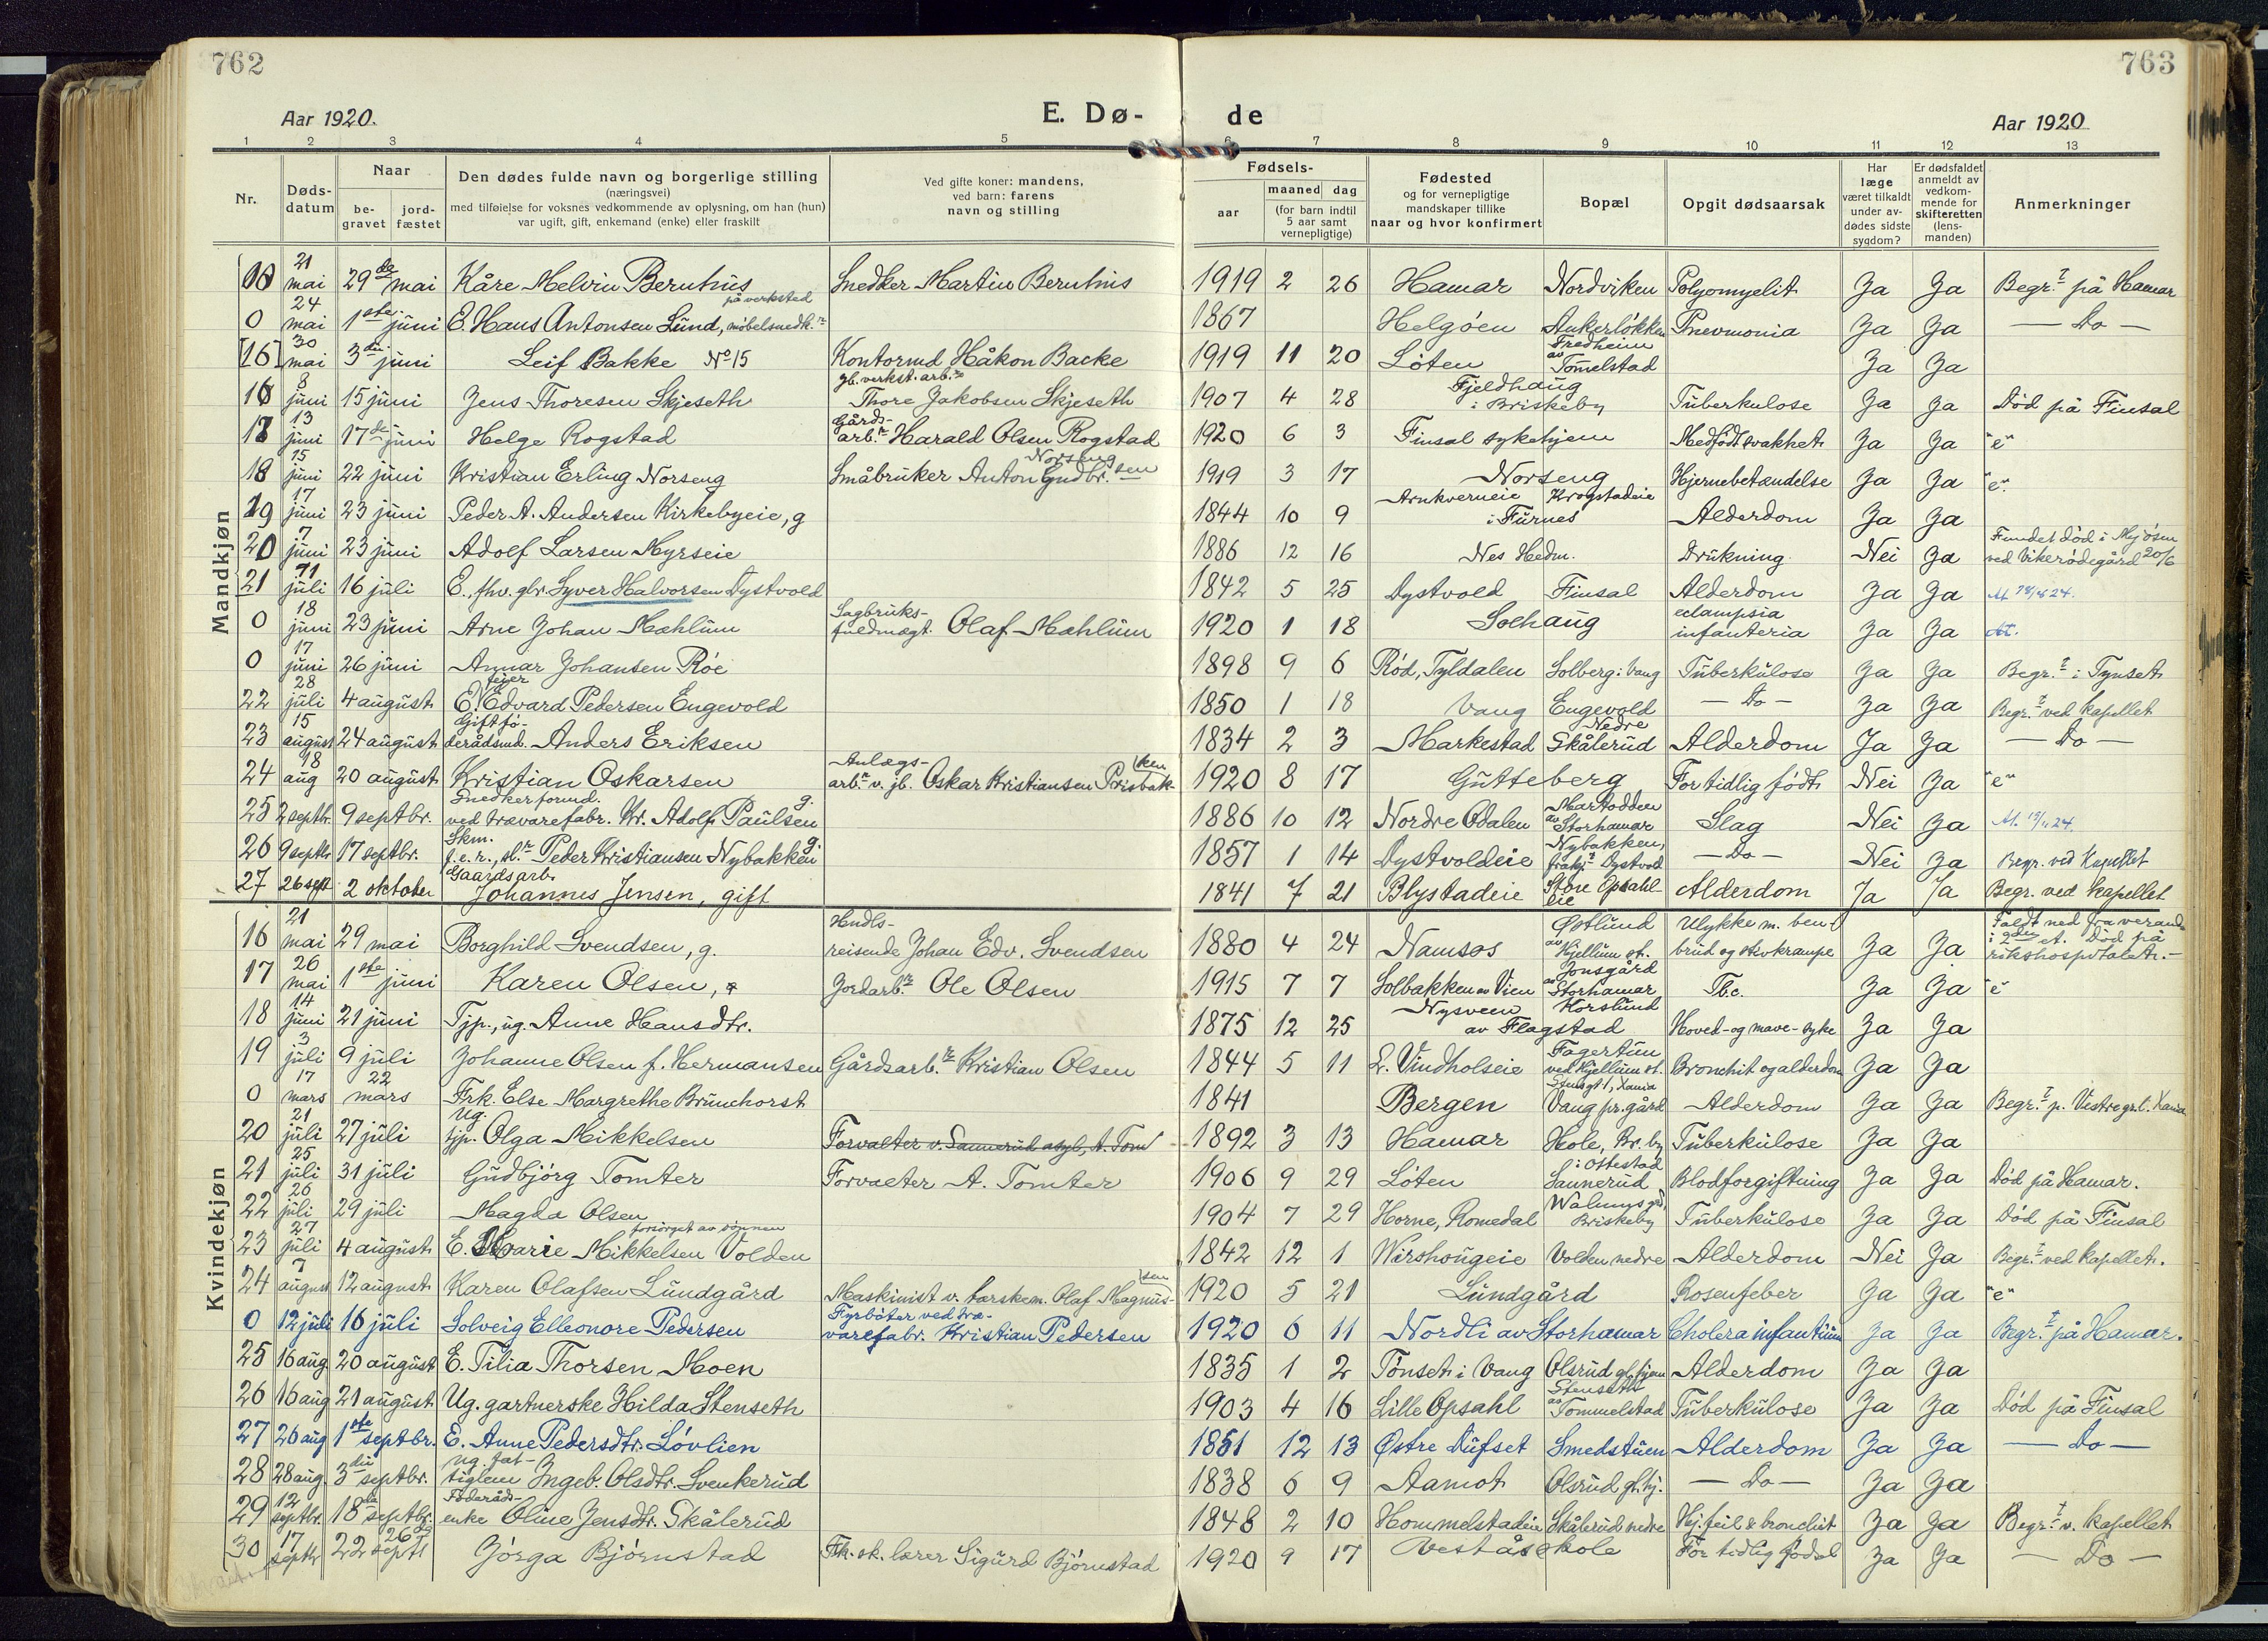 762
763
Aar 1920.
E. Dø-
de
Aar 1920
1 2 3 4 5 6 7 8 9 10 11 12 13
Nr.
Døds-
datum
Naar
be-
gravet
jord-
fæstet
Den dødes fulde navn og borgerlige stilling
(næringsvei)
med tilføielse for voksnes vedkommende av oplysning, om han (hun)
var ugift, gift, enkemand (enke) eller fraskilt
Ved gifte koner: mandens,
ved barn: farens
navn og stilling
Fødsels-
aar
maaned dag
(for barn indtil
5 aar samt
vernepligtige)
Fødested
og for vernepligtige
mandskaper tillike
naar og hvor konfirmert
Bopæl
Opgit dødsaarsak
Har
læge
været tilkaldt
under av-
dødes sidste
sygdom?
Er dødsfaldet
anmeldt av
vedkom-
mende for
skifteretten
(lens-
manden)
Anmerkninger
Mandkjøn
21 mai 29de mai Kåre Melvin Bernhus Snedker Martin Bernhus 1919 2 26 Hamar Nordviken Polyomyelit Ja Ja Begr.t på Hamar
0 24 mai 1ste juni E. Hans Antonsen Lund, møbelsnedk.r på verksted 1867 Helgøen Ankerløkken Pnevmonia Ja Ja — Do —
[16] 30 mai 3die juni Leif Bakke No 15 Kontormd Håkon Backe 1919 11 20 Løten Fredheim av Tomelstad Ja Ja
16 8 juni 15 juni Jens Thoresen Skjeseth Jb. verkst. arb.r Thore Jakobsen Skjeseth 1907 4 28 Fjeldhaug i Briskeby Tuberkulose Ja Ja Død på Finsal
17 13 juni 17de juni Helge Rogstad Gårds-arb.r Harald Olsen Rogstad 1920 6 3 Finsal sykehjem Medfødt svakhet Ja Ja "e"
18 15 juni 22 juni Kristian Erling Norseng Småbruker Anton Gudbr.sen Norseng 1919 3 17 Norseng Hjernebetændelse Ja Ja "e"
19 17 juni 23 juni Peder A. Andersen Kirkebyeie, g 1844 10 9 Arnkverneie i Furnes Krogstadeie Alderdom Ja Ja
20 7 juni 23 juni Adolf Larsen Myrseie 1886 12 16 Nes Hedm. Drukning Nei Ja Fundet død i Mjøsen ved Vikerødegård 20/6
21 11 juli 16 juli E., fhv. gbr. Syver Halvorsen Dystvold 1842 5 25 Dystvold Finsal Alderdom Ja Ja
0 18 juni 23 juni Arne Johan Mæhlum Sagbruks-fuldmægt. Olaf Mæhlum 1920 1 18 Solhaug eclampsia infanteria Ja Ja At.
0 17 juni 26 juni Annar Johansen Røe 1898 9 6 Rød, Tyldalen Solberg i Vang Tuberkulose Ja Ja Begr.t i Tynset
22 28 juli 4 august E. feier Edvard Pedersen Engevold 1850 1 18 Vang Engevold — Do — Ja Ja Begr.t ved kapellet
23 15 august 24 august Gift fø-derådsmd. Anders Eriksen 1834 2 3 Markestad Nedre Skålerud Alderdom Ja Ja — Do —
24 18 aug 20 august Kristian Oskarsen Anlægs-arb.r v. jb. Oskar Kristiansen Prisbakken 1920 8 17 Gutteberg For tidlig født Nei Ja "e"
25 2 septb. 9 septbr. Snedkerformd. ved trævarefabr. Kr. Adolf Paulsen g. 1886 10 12 Nordre Odalen Martodden av Storhamar Slag Nei Ja
26 9 septb 17 septbr. Skm. f.e.r., st.r Peder Kristiansen Nybakken g. 1857 1 14 Dystvoldeie Nybakken, frakj.t Dystvod — Do — Nei Ja Begr. ved Kapellet
27 26 sept 2 oktober Gaardsarb. Johannes Jensen, gift 1841 7 21 Blystadeie Store Opsahl eie Alderdom Ja Ja Begr. ved kapellet
Kvindekjøn
16 21 mai 29 mai Borghild Svendsen, g. Handls-reisende Johan Edv. Svendsen 1880 4 24 Namsos Østlund av Hjellum st. Ulykke m. ben-brud og stivkrampe Ja Ja Faldt ned fra veranda i 2den et. Død på rikshospitalet.
17 26 mai 1ste juni Karen Olsen, Jordarb.r Ole Olsen 1915 7 7 Solbakken av Vien Jonsgård av Storhamar Tbc. Ja Ja "e"
18 14 juni 21 juni Tjp., ug. Anne Hansdtr. 1875 12 25 Nysveen av Flagstad Horslund Hoved- og mave-syke Ja Ja
19 3 juli 9 juli Johanne Olsen f. Hermansen Gårdsarb.r Kristian Olsen 1844 5 11 L. Vindholseie Fagertun ved Hjellum st. Bronchit og alderdom Ja Ja
0 17 mars 22 mars Frk. Else Margrethe Brunchorst 1841 Bergen Stensgt 1, Xania Vang pr.gård Alderdom Ja Ja Begr.t p. Vestre gr.l. Xania
20 21 juli 27 juli Ug. tjp. Olga Mikkelsen Forvalter v. Sannerud asyl, A. Tom 1892 3 13 Hamar Hole, Br. by Tuberkulose Ja Ja
21 25 juli 31 juli Gudbjørg Tomter Forvalter A. Tomter 1906 9 29 Løten i Ottestad Sannerud Blodforgiftning Ja Ja Død på Hamar.
22 26 juli 29 juli Magda Olsen 1904 7 29 Horne, Romedal Briskeby Tuberkulose Ja Ja Død på Finsal
23 27 juli 4 august E. Marie Mikkelsen Volden forsørget av sønnen 1842 12 1 Wirshougeie Volden nedre Alderdom Nei Ja Begr.t ved kapellet.
24 7 august 12 august Karen Olafsen Lundgård Maskinist v. tørskem. Olaf Magnussen 1920 5 21 Lundgård Rosenfeber Ja Ja "e"
0 12 juli 16 juli Solveig Elleonore Pedersen Fyrbøter ved træ-varefabr. Kristian Pedersen 1920 6 11 Nordli av Storhamar Cholera infantium Ja Ja Begr.t på Hamar.
25 16 aug 20 august E. Tilia Thorsen Moen 1835 1 2 Tønset i Vang Olsrud gl.hjem Alderdom Ja Ja
26 16 aug 21 august Ug. gartnerske Hilda Stenseth 1903 4 16 Lille Opsahl Stenseth av Tommelstad Tuberkulose Ja Ja Død på Finsal
27 26 aug 1ste septbr. E. Anne Pedersdtr. Løvlien 1851 12 13 Østre Dufset Smedstuen Alderdom Ja Ja — Do —
28 28 aug. 3die septbr. Ug. fat-tiglem Ingeb. Olsdtr. Svenkerud 1838 6 9 Aamot Olsrud gl.hj. — Do — Ja Ja
29 12 septbr. 18de septbr. Føderåds-enke Oline Jensdtr. Skålerud 1848 2 10 Hommelstadeie Skålerud nedre Hj.feil & bronchit Ja Ja Begr.t v. kapellet
30 17 septb 22 26de septb Jørga Bjørnstad Fk. sk. lærer Sigurd Bjørnstad 1920 9 17 Vestås skole For tidlig født Ja Ja — Do —